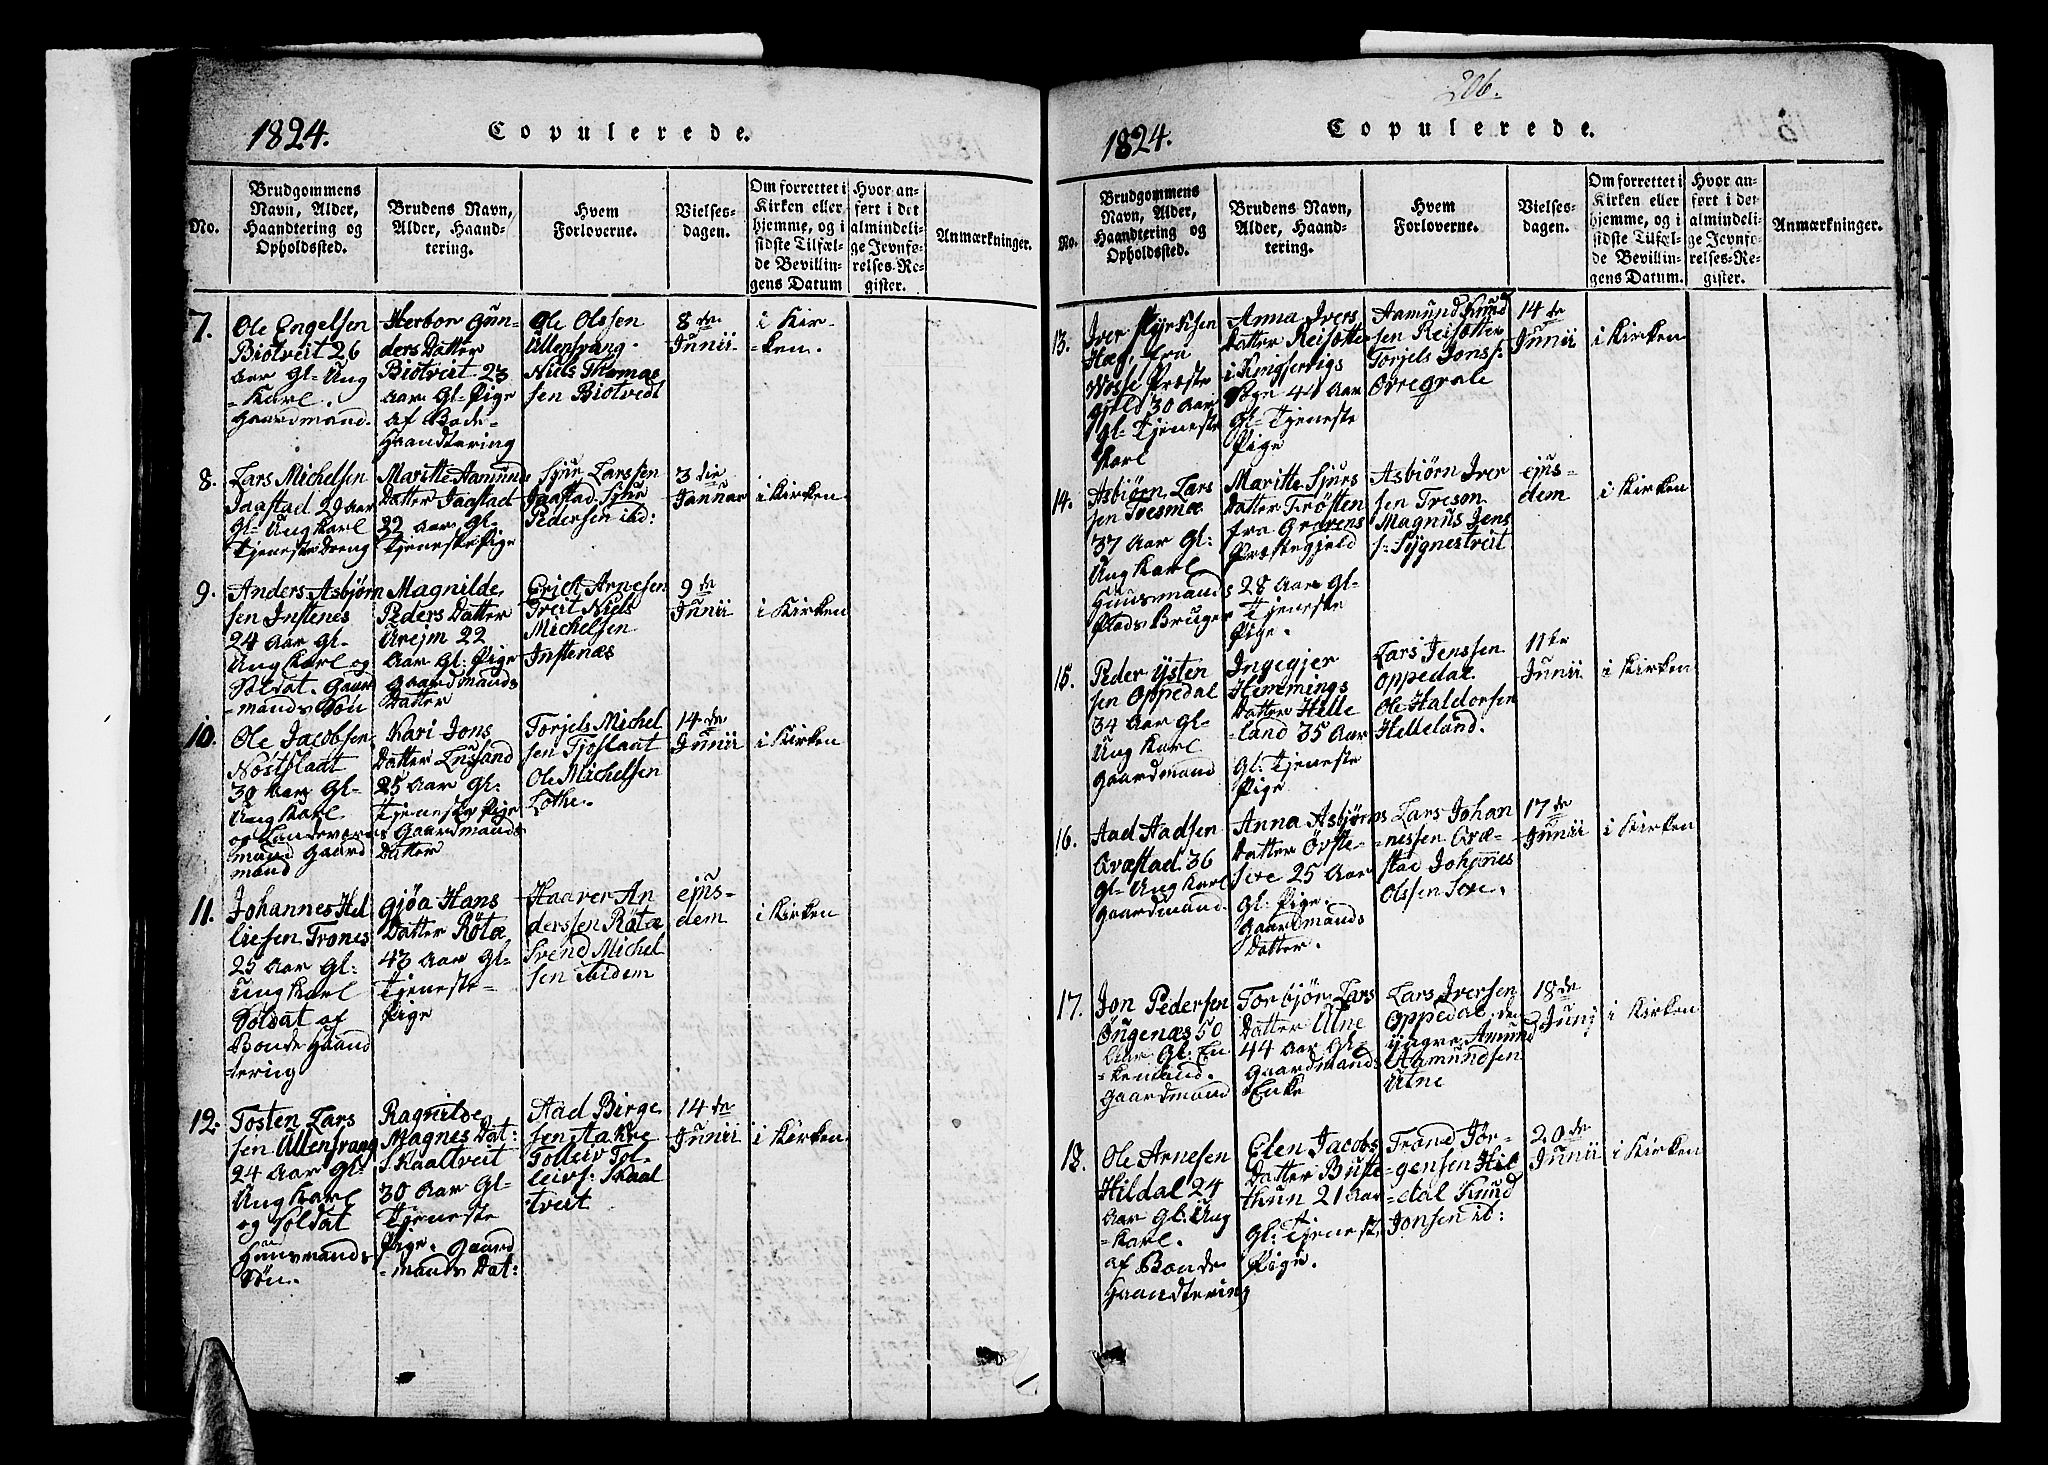 1824.
Copulerede.
No.
Brudgommens
Navn, Alder,
Haandtering og
Opholdssted.
Brudens Navn,
Alder, Haand-
tering.
Hvem
Forloverne.
Vielses-
dagen.
Om forrettet i
Kirken eller
hjemme, og i
sidste Tilfæl-
de Bevillin-
gens Datum
Hvor an-
ført i det
almindeli-
ge Jevnfø-
relses-Re-
gister.
Anmærkninger.
7.
Ole Engelsen
Biotveit 26
Aar Gl- Ung
-Karl.
Gaardmand.
Herbor Gun-
ders Datter
Biotveit 23
Aar Gl- Pige
af Bode-
Haandtering
Ole Olssen
Ullensvang.
Niels Thomas
sen Biotvedt
8de
Junii
i Kir-
-ken.
8.
Lars Michelsen
Jaastad 29 Aar
Gl- Ung Karl
Tjeneste Dreng
Maritte Aamunds
Datter Jaastad
22 Aar Gl-
Tjeneste Pige
Sjur Larssen
Jaastad Sjur
Pedersen ibd:
3die
Januar
i Kirken
9.
Anders Asbjørn
sen Instenes
24 Aar Gl-
Ung Karl og
Soldat. Gaar
-mands Søn
Magnilde
Peders Datter
Urejm 22
Aar Gl: Pige
Gaardmands
Datter
Erich Arnesen
Treit Niels
Michelsen
Instenæs
9de
Junii
i Kirken
10.
Ole Jacobsen
Nostflaat
30 Aar Gl-
Ung Karl
og Landeværns
mand Gaard
mand
Kari Jons
Datter Lusand
25 Aar Gl:
Tjeneste Pige
Gaardmands
Datter
Torjels Michel
sen Tjoflaat
Ole Michelsen
Lothe.
14de
Junii
i Kirken
11.
Johannes Hel
liesen Trones
25 Aar Gl:
Ung Karl
Soldat af
Bonde Haand
-tering
Gjøa Hans
Datter Røtæ
43 Aar Gl-
Tjeneste-
Pige
Haaver An
derssen Røtæ
Svend Michel
sen Ibidem
ejus-
dem
i Kirken
12.
Tosten Lars
sen Ullensvang
24 Aar Gl-
Ung Karl
og Soldat
Huusmands
Søn.
Ragnilde
Magnes Dat:
Skaaltveit
30 Aar Gl-
Tjeneste
Pige. Gaard
-mands Dat:
Aad Birge
sen Aakre
Tolleiv Tol-
leivs: Skaal
tveit
14de
Junii
i Kirken
206.
1824.
Copulerede.
No.
Brudgommens
Navn, Alder,
Haandtering og
Opholdssted.
Brudens Navn,
Alder, Haand-
tering.
Hvem
Forloverne.
Vielses-
dagen.
Om forrettet i
Kirken eller
hjemme, og i
sidste Tilfæl-
de Bevillin-
gens Datum.
Hvor an-
ført i det
almindeli-
ge Jevnfø-
relses-Re-
gister.
Anmærkninger.
13.
Iver
Hæg, fra
Vosse Præste
gjeld 30 Aar
Gl- Tjeneste
Karl
Anna Ivers
Datter Reisætte
i Kingservigs
Sogn 41 Aar
Gl- Tjeneste
Pige
Aamund Knud
sen Reisætter
Torjels Jons s:
Ovregrale
14de
Junii
i Kirken
14.
Asbiørn Lars
sen Tresmæ
37 Aar Gl:
Ung Karl
Huusmands
Plads Bruger
Maritte Sjurs
Datter Trøsten
fra Gravens
Præstegjeld
28 Aar Gl-
Tjeneste
Pige.
Asbiørn Iver
sen Treson
Magnus Jens
s: Sygnestveit
ejus-
dem
i Kirken
15.
Peder Ysten
sen Oppedal
34 Aar Gl-
Ung Karl
Gaardmand
Ingegjer
Hemmings
Datter Helle
-land 35 Aar
Gl: Tjeneste
Pige
Lars Jenssen
Oppedal
Ole Haldorsen
Helleland.
11te
Junii
i Kirken
16.
Aad Aadsen
Qvæstad 36
Gl- Ung Karl
Gaardmand.
Anna Asbjørns
Datter Øvste-
sexe 25 Aar
Gl: Pige.
Gaardmands
Datter.
Lars Johan
-nessen Qvæ-
stad Johannes
Olssen Sexe.
17de
Junii
i Kirken
17.
Jon Pedersen
Øugenæs 50
Aar Gl: En
-kemand.
Gaardmand
Torbjør Lars
Datter Utne
44 Aar Gl-
Gaardmands
Enke
Lars Iversen
Oppedal den
yngre, Amund
Aamundsen
Utne
18de
Junj
i Kirken
18.
Ole Arnesen
Hildal 24
Aar Gl: Ung
-Karl.
af Bonde
Haandtering
Elen Jacobs
Datter Buste
thun 21 Aar
Gl: Tjeneste
Pige.
Trand Jør-
gensen Hil
-dal Knud
Jonsen ib:
20de
Junii
i Kirken